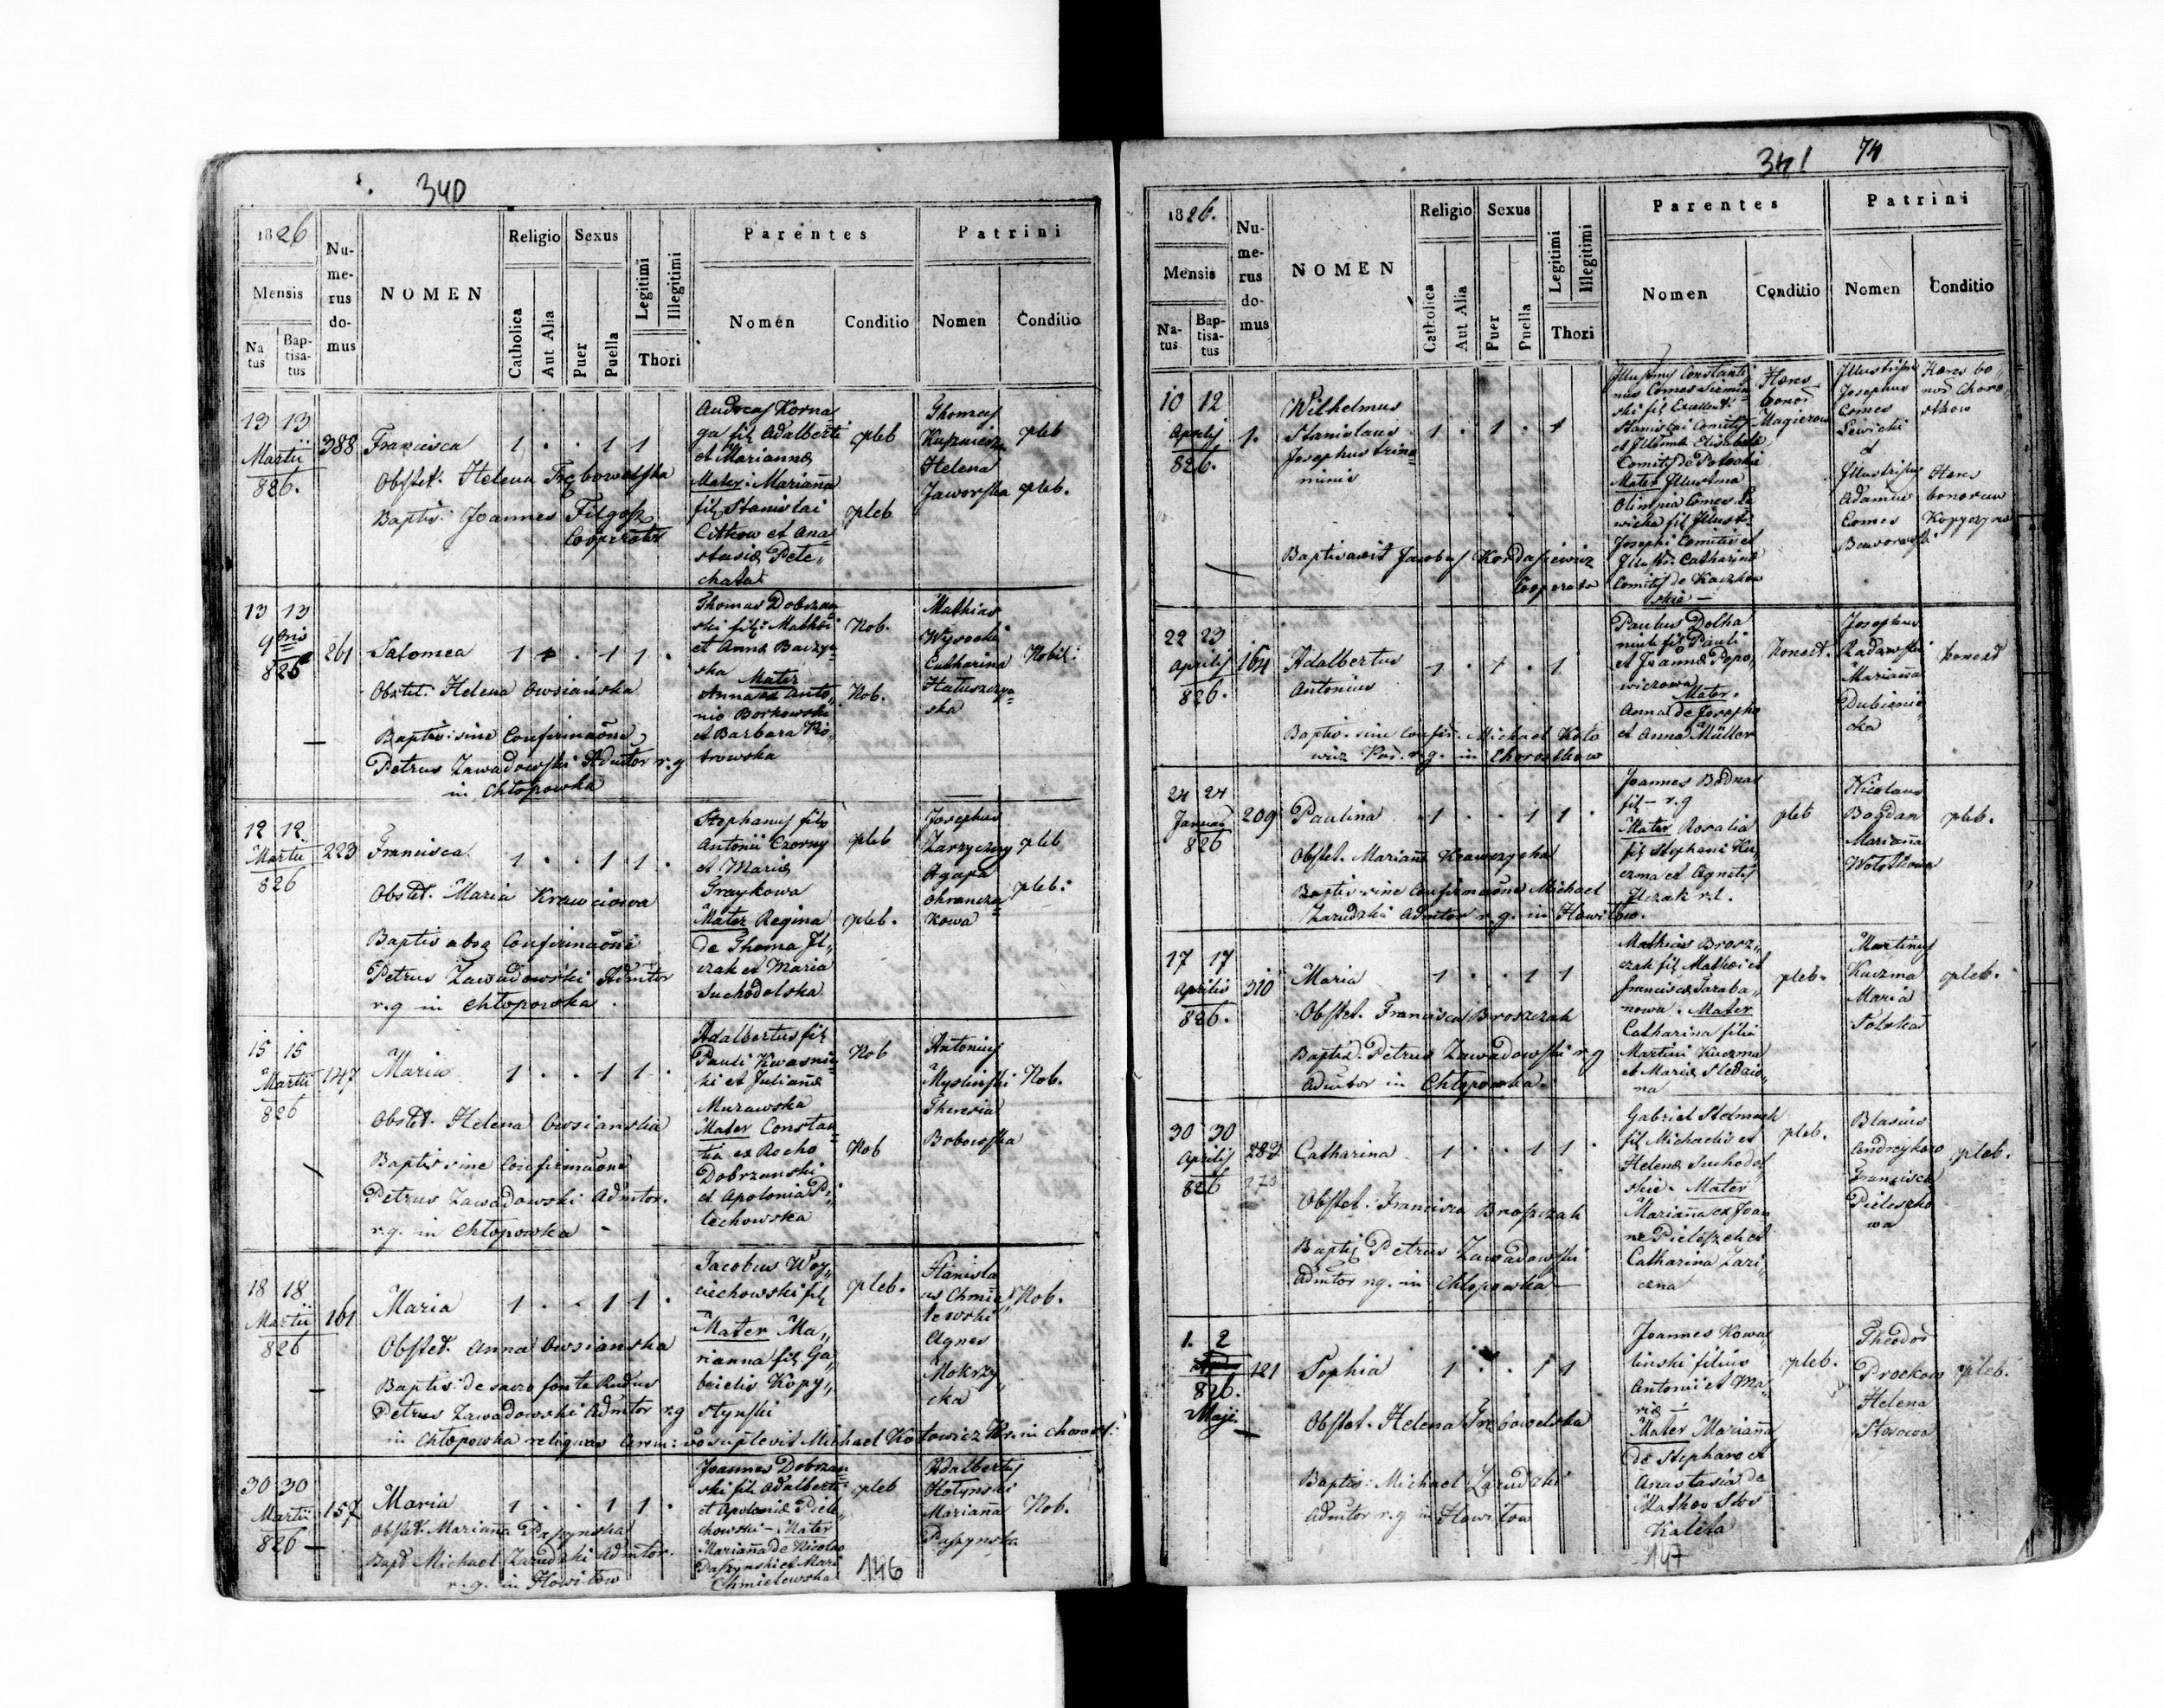 340
1826
Mensis
Na
tus
Bap-
tisa-
tus
Nu-
me-
rus
do-
mus
NOMEN
Religio
Catholica
Aut Alia
Sexus
Puer
Puella
Legitimi
Illegitimi
Thori
Parentes
Nomen
Conditio
Patrini
Nomen
Conditio
13 13
Martii
826.
388
Francisca
1 . . 1 1
Obstet. Helena Trębowelska
Baptis: Joannes Filgosz
Cooperator
Andreas Korna
ga fil Adalberti
et Marianna
Mater: Marianna
fil Stanislai
Citkow et Ana
stasiæ Pele„
chata
pleb
pleb
Thomas
Kusznierz
Helena
Jaworska
pleb
pleb.
13 13
9bris
825
261
Salomea
1 . . 1 1 .
Obstet. Helena Owsiańska
Baptis: sine Confirmaõne
Petrus Zawadowski Admtor r.g
in Chłopowka
Thomas Dobrzan
ski fil: Mathæi
et Annæ Baczyn
ska Mater
Anna ex Anto„
nio Borkowski
et Barbara Pio„
trowska
Nob.
Nob.
Mathias
Wysocki
Catharina
Hatuszczyn
ska
Nobil:
12 12
Martii
826
223
Francisca
1 . . 1 1 .
Obstet. Maria Krawciowa
Baptis absq Confirmaõne
Petrus Zawadowski Admtor
r.g in Chłopowka .
Stephanus fil
Antonii Czorny
et Mariæ
Fraykowa
Mater Regina
de Thoma Il„
czak et Maria
Suchodolska
pleb
pleb.
Josephus
Zarzyczny
Agapa
Ohrancza
kowa
pleb
pleb:
15 15
Martii
826
147
Maria
1 . . 1 1 .
Obstet. Helena Owsianska
Baptis sine Confirmaõne
Petrus Zawadowski Admtor.
r.g. in Chłopowka -
Adalbertus fil
Pauli Kwasnic
ki et Julianæ
Murawska
Mater Constan
tia ex Rocho
Dobrzanski
et Apolonia Pi„
lechowska
Nob
Nob
Antonius
Myslinski
Theresia
Bobowska
Nob.
18 18
Martii
826
161
Maria
1 . . 1 1 .
Obstet. Anna Owsianska
Baptis: de sacro fonte Rudus
Petrus Zawadowski Admtor r.g
in Chłopowka reliquas Cerem: vo suplevit Michael Kotowicz Par: in Chorost:
Jacobus Woy„
ciechowski fil
Mater Ma„
rianna fil Ga„
brielis Kopy„
stynski
pleb.
Stanisla
us Chmie„
lewski
Agnes
Mokrzy„
cka
Nob.
30 30
Martii
826
157
Maria
1 . . 1 1 .
Obstet. Marianna Paszynska
Bapt Michael Zarudzki Admtor.
r.g. in Howitow
Joannes Dobrzan
ski fil Adalberti
et Apolonia Piele
chowski - Mater
Marianna de Nicolao
Paszynski et Mari
Chmielewska
pleb
Adalbertus
Hołynski
Marianna
Paszynska
Nob.
146
341 74
1826.
Mensis
Na-
tus
Bap-
tisa-
tus
Nu-
me-
rus
do-
mus
NOMEN
Religio
Catholica
Aut Alia
Sexus
Puer
Puella
Legitimi
Illegitimi
Thori
Parentes
Nomen
Conditio
Patrini
Nomen
Conditio
10 12
Aprilis
826.
1.
Wilhelmus
Stanislaus
Josephus trino
minis
1 . 1 . 1
Baptisavit Jacobus Kordasiewicz
Cooperator
Illustmus Constanti
nus Comes Siemin
ski fil Excellent
Stanislai Comitis
et Illtmæ Elisabeth
Comitis de Potockie
Mater Illustma
Olimpia Comes Le
wicka fil Illust:
Josephi Comitis et
Illustr: Catharinæ
Comitis de Kaczkow
skie -
Hæres
bonor
Magierow
Illustrissi
Josephus
Comes
Lewicki
et
Illustrissi
Adamus
Comes
Baworowski
Hæres bo„
nor Choro„
stkow
Hæres
bonorum
Kopyczyn
22 23
Aprilis
826.
164
Adalbertus
Antonius
1 . 1 . 1
Baptis. sine Confir. Michael Koto
wicz Par. r.g. in Chorostkow
Paulus Dolha
niuk fil Pauli
et Joannæ Popo„
wiczowa
Mater.
Anna de Josepho
et Anna Müller
honest.
Josephus
Radawski
Marianna
Dubienie
cka
honest
24 24
Januar
826
209
Paulina
1 . . 1 1 .
Obstet. Marianna Krawczycha
Baptis sine Confirmaõne Michael
Zarudzki Admtor r.g. in Howitow.
Joannes Bodnar
fil - r.g
Mater Rosalia
fil Stephani Ku„
czma et Agnetis
Ilczak r.l.
pleb
Nicolaus
Bogdan
Marianna
Wołoskowa
pleb.
17 17
Aprilis
826.
310
Maria
1 . . 1 1
Obstet. Francisca Broszczak
Baptis. Petrus Zawadowski r.g
Admtor in Chłopowka.
Mathias Brosz„
czak fil Mathæi et
Francisca Taraba„
nowa. Mater
Catharina filia
Martini Kuczma
et Mariæ Sledzio„
na
pleb.
Martinus
Kuczma
Maria
pleb.
30 30
Aprilis
826
282
270
Catharina
1 . . 1 1 .
Obstet. Francisca Broszczak
Baptis Petrus Zawadowski
Admtor r.g. in Chłopowka -
Gabriel Stelmach
fil Michaelis et
Helenæ Suchodol
skie. Mater
Marianna ex Joan
ne Pieloszek et
Catharina Zari„
czna
pleb.
Blasius
Andrzykow
Francisca
Pieloszko
wa
pleb.
1. 2
826.
Maji
121
Sophia
1 . . 1 1
Obstet. Helena Trębowelska
Baptis: Michael Zarudzki
Admtor r.g in Howitow
Joannes Kowa
linski filius
Antonii et Ma„
riæ -
Mater Marianna
de Stephano et
Anastasia de
Mathæo Stos
Kaleta
pleb.
Theodor
Prockow
Helena
Stosowa
pleb.
147